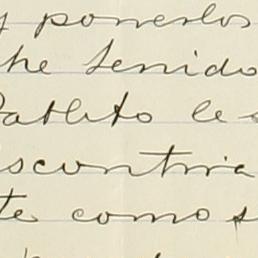 y ponerlos
he tenido
Pablito le
scontria
te como s